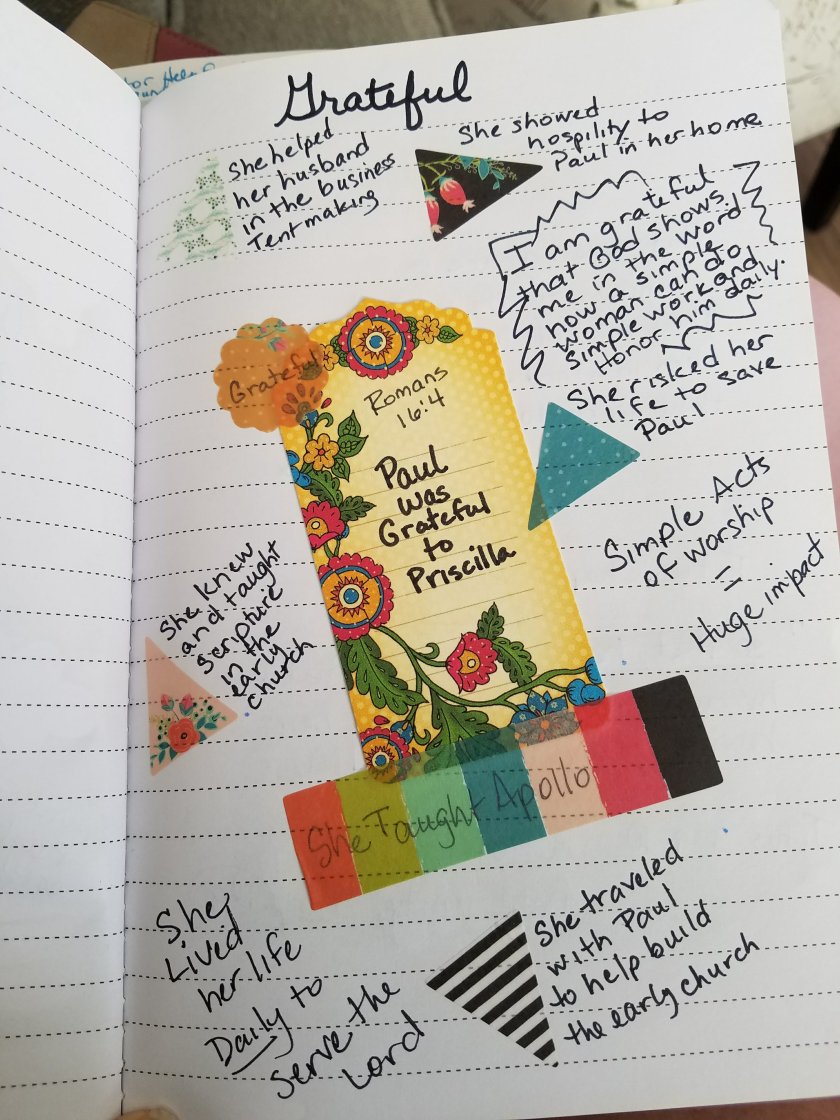 Grateful
She helped
her husband
in the business
Tent making
She showed
hospility to
Paul in her home
I am grateful
that God shows
me in the word
how a simple
woman can do
simple work and
Honor him daily.
Grateful
Romans
16:4
Paul
was
Grateful
to
Priscilla
She risked her
life to save
Paul
Simple Acts
of worship
=
Huge impact
She knew
and taught
scripture
in the
early
church
She Taught Apollo
She
Lived
her life
Daily to
serve the
Lord
She traveled
with Paul
to help build
the early church